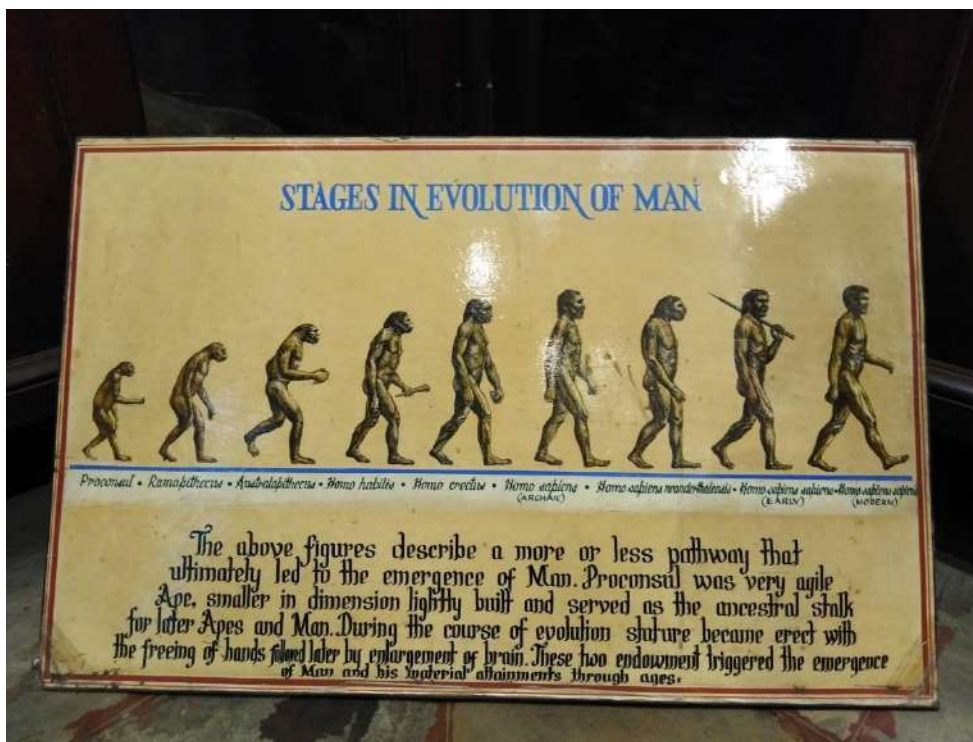 STAGES IN EVOLUTION OF MAN
Proconsul • Ramapithecus • Australopithecus • Homo habilis • Homo erectus • Homo sapiens • Homo sapiens neanderthalensis • Homo sapiens sapiens • Homo sapiens sapiens
(ARCHAIC) (EARLY) (MODERN)
The above figures describe a more or less pathway that
ultimately led to the emergence of Man. Proconsul was very agile
Ape, smaller in dimension lightly built and served as the ancestral stalk
for later Apes and Man. During the course of evolution stature became erect with
the freeing of hands followed later by enlargement of brain. These two endowment triggered the emergence
of Man and his material attainments through ages.